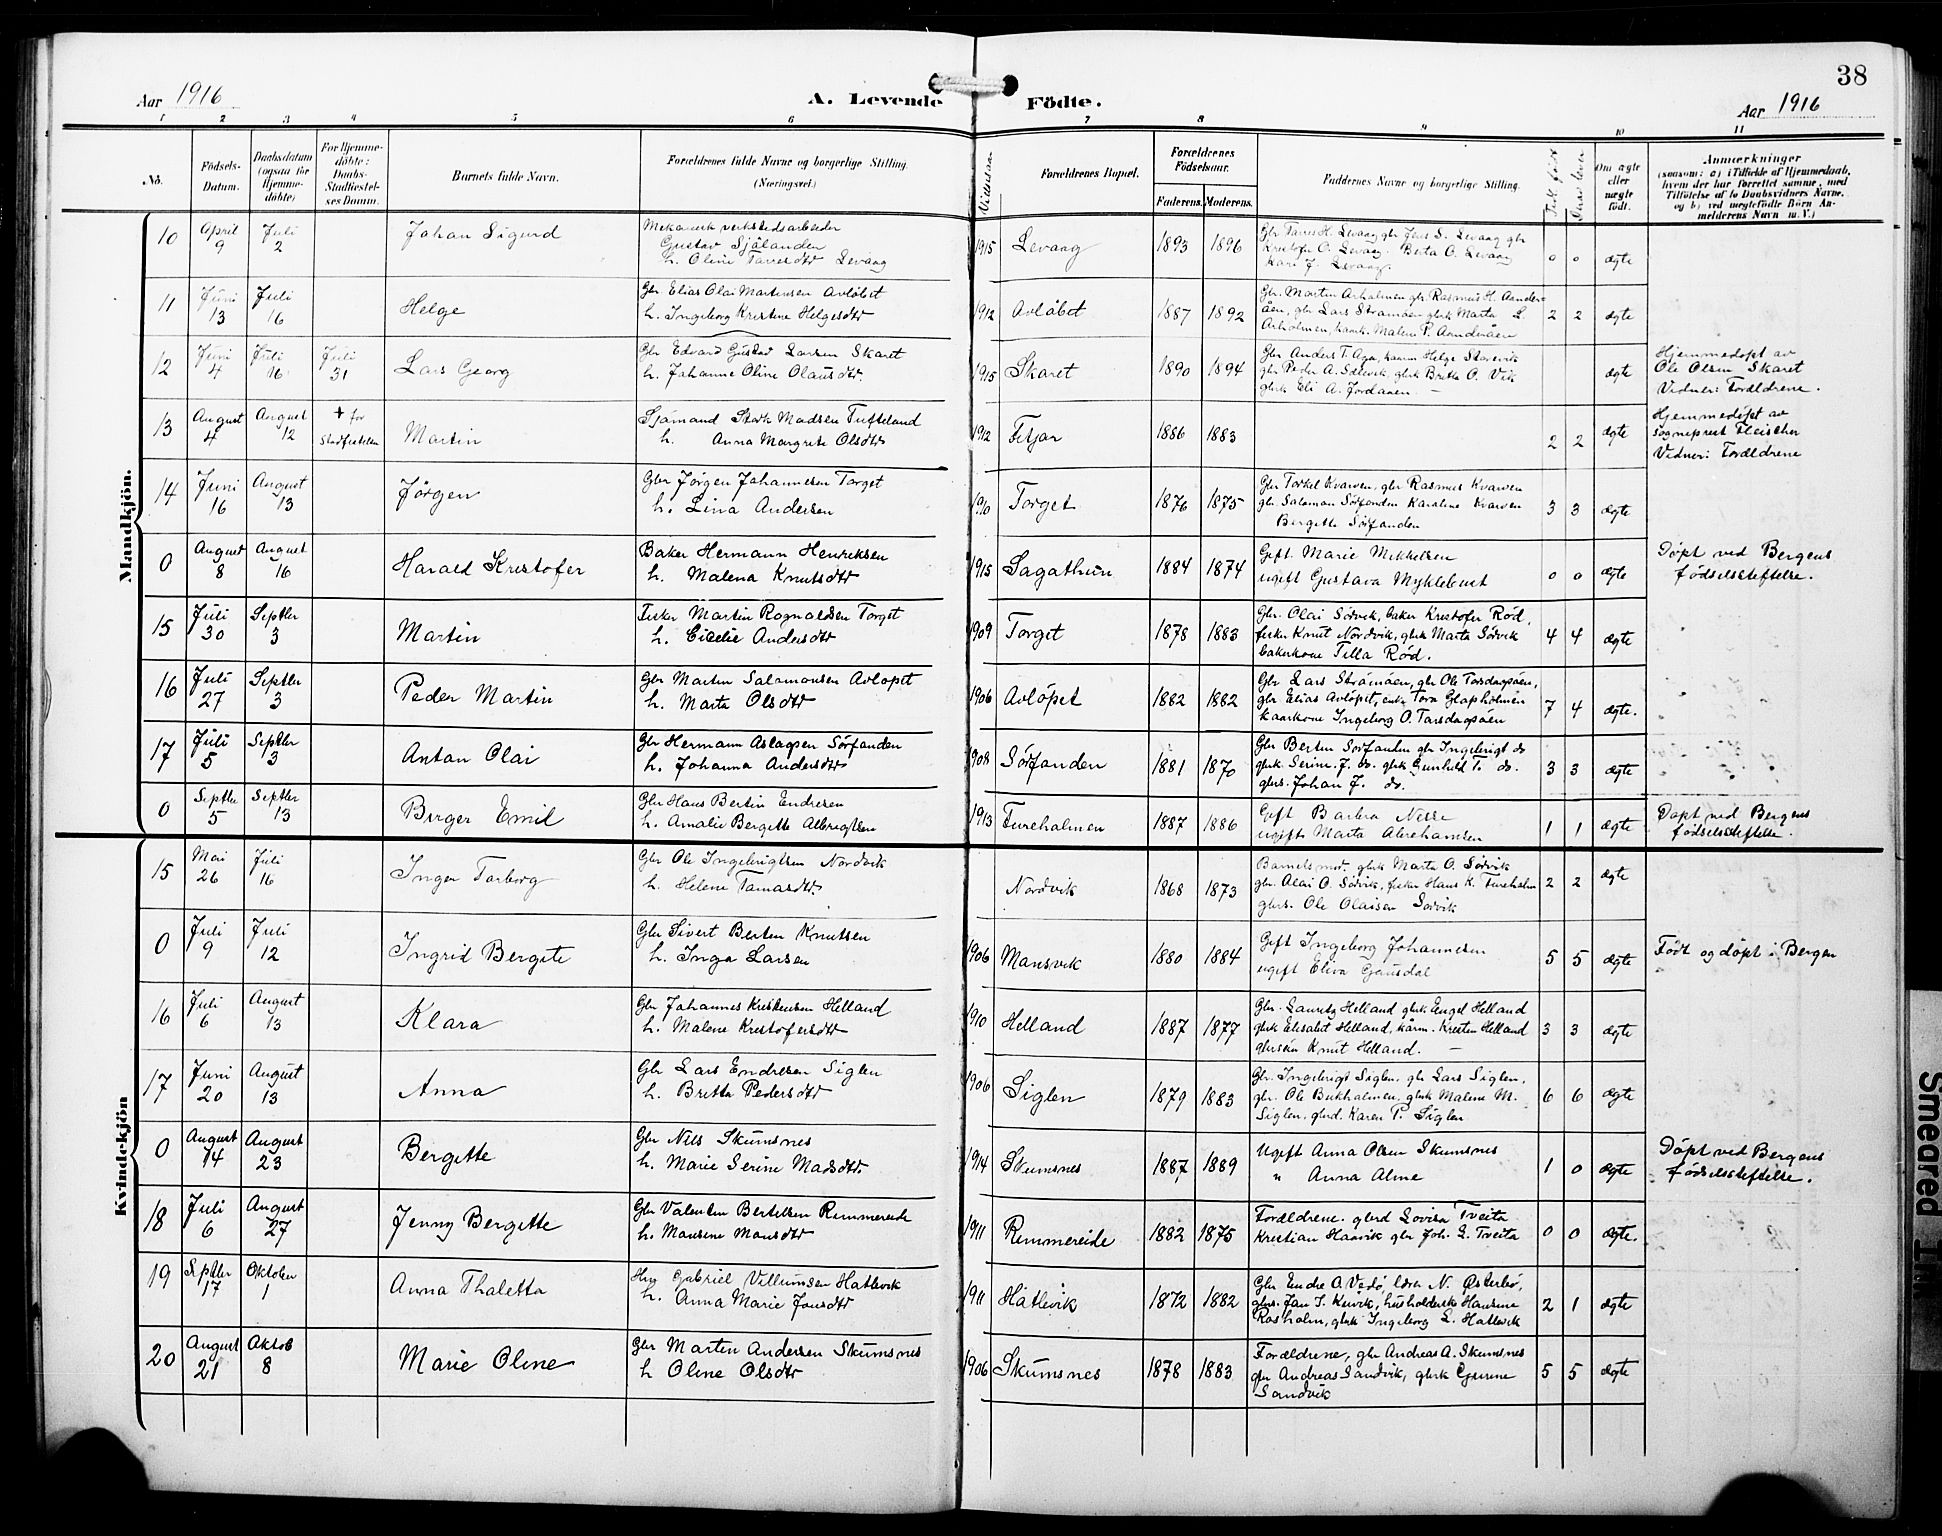 38
Aar 1916
A. Levende Födte.
Aar 1916
1 2 3 4 5 6 7 8 9 10 11
No.
Födsels-
Datum.
Daabsdatum
(ogsaa för
Hjemme-
döbte)
For Hjemme-
döbte:
Daabs-
Stadfæstel-
ses Datum.
Barnets fulde Navn.
Forældrenes fulde Navne og borgerlige Stilling.
(Næringsvei.)
Vielsesaar
Forældrenes Bopæl.
Forældrenes
Födselsaar.
Faderens. Moderens.
Faddernes Navne og borgerlige Stilling.
Om ægte
eller
uægte
födt.
Anmærkninger
(saasom: a) i Tilfælde af Hjemmedaab,
hvem der har forrettet samme, med
Tilföielse af to Daabsvidners Navne,
og b) ved uægtefödte Börn An-
melderens Navn m. V.)
Mandkjön.
10 April 9 Juli 2 Johan Sigurd
Mekanisk verkstedsarbeider
Gustav Sjålander
h. Oline Tarresdtr Levaag
1915 Levaag 1893 1896
Gbr Tarres H. Levaag gbr Jens S. Levaag gbr
Kristofer O. Levaag. Berta O. Levaag
Kari J. Levaag.
0 0 ægte
11 Juni 13 Juli 16 Helge
Gbr Elias Olai Martinsen Avlöbet
h. Ingeborg Kristine Helgesdtr
1912 Avlöbet 1887 1892
Gbr. Martin Arholmen gbr. Rasmus H. Aander-
åen, gbr Lars Strömåen gbrk Marta L
Arholmen, kaark. Malene P. Aanderåen
2 2 ægte
12 Juni 4 Juli 16 Juli 31 Lars Georg
Gbr Edvard Gustav Larsen Skaret
h. Johanne Oline Olausdtr.
1915 Skaret 1890 1894
Gbr Anders T. Aga, kaarm Helge Storevik
gbr Peder A. Sörevik, gbrk Britha O. Vik
gbrk Eli A. Jordaaen
ægte
Hjemmedöpt av
Ole Olsen Skaret
Vidner: Forældrene.
13 August 4 August 12 + for Stadfestelsen Martin
Sjömand Stark Madsen Tufteland
h. Anna Margrete Olsdtr
1912 Fitjar 1886 1883 2 2 ægte
Hjemmedöpt av
Sogneprest Fleischer
Vidner: Forældrene
14 Juni 16 August 13 Jörgen
Gbr Jörgen Johannesen Torget
h. Lina Andersen
1910 Torget 1876 1875
Gbr Torkel Kvarven, gbr Rasmus Kvarven
gbr Salamon Sörfonden Karoline Kvarven
Bergette Sörfanden
3 3 ægte
0 August 8 August 16 Harald Kristofer
Baker Hermann Henriksen
h. Malena Knutsdtr
1915 Sagathun 1884 1874
Gift Marie Mikkelsen
ugift Gustava Myklebust
0 0 ægte
Döpt ved Bergens
fødselsstiftelse.
15 Juli 30 Septbr 3 Martin
Fisker Martin Rognaldsen Torget
h. Cicelie Andersdtr
1909 Torget 1878 1883
Gbr. Olai Södvik, baker Kristofer Röd,
fisker Knut Nordvik, gbrk Marta Södvik
bakerkone Tilla Röd.
4 4 ægte
16 Juli 27 Septbr 3 Peder Martin
Gbr Martin Salamonsen Avlöpet
h. Marta Olsdtr
1906 Avlöpet 1882 1882
Gbr Lars Strömåen, gbr Ole Torsdagsåen,
gbr Elias Avlöpet, enke Tora Glapholmen
kaarkone Ingeborg O. Torsdagsåen
7 4 ægte.
17 Juli 5 Septbr 3 Anton Olai
Gbr Hermann Aslagsen Sörfanden
h. Johanna Andersdtr
1908 Sörfanden 1881 1870
Gbr Berten Sörfanden gbr Ingebrigt do
gbrk. Serine J. do. gbrk Gunhild T. do.
gbrs. Johan J. do.
3 3 ægte
0 Septbr 5 Septbr 13 Birger Emil
Gbr Hans Bertin Endresen
h. Amalie Bergitte Albrigtsen
1913 Tureholmen 1887 1886
Gift Barbra Nesse
ugift Marta Abrahamsen
1 1 ægte
Döpt ved Bergens
födselsstiftelse.
Kvindekjön
15 Mai 26 Juli 16 Inger Torborg
Gbr Ole Ingebrigtsen Nordvik
h. Helene Tomasdtr.
Nordvik 1868 1873
Barnets mor, gbrk Marta O. Södvik
gbr. Olai O. Södvik, fisker Hans K. Tureholm
gbrs. Ole Olaisen Södvik
2 2 ægte
0 Juli 9 Juli 12 Ingrid Bergite
Gbr Sivert Berten Knutsen
h. Inga Larsen
1906 Mansvik 1880 1884
Gift Ingeborg Johannesen
ugift Eliva
5 5 ægte
Født og døpt i Bergen
16 Juli 6 August 13 Klara
Gbr Johannes Kristensen Helland
h. Malene Kristofersdtr
1910 Helland 1887 1877
Gbr. Lauritz Helland gbrk Engel Helland
gbrk Elisabet Helland, kårm. Kristen Helland
gbrsön Knut Helland.
3 3 ægte
17 Juni 20 August 13 Anna
Gbr Lars Endresen Siglen
h. Britta Pedersdtr
1906 Siglen 1879 1883
Gbr. Ingebrigt Siglen. gbr Lars Siglen,
gbr. Ole Bukholmen, gbrk Malene M.
Siglen, gbrd. Karen P. Siglen
6 6 ægte
0 August 14 August 23 Bergette
Gbr Nils Skumsnes
h. Marie Serine Madsdtr
1914 Skumsnes 1887 1889
Ugift Anna Olsen Skumsnes
" Anna Alme
1 0 ægte
Döpt ved Bergens
födselsstiftelse.
18 Juli 6 August 27 Jenny Bergitte
Gbr Valentin Bertelsen Rimmereide
h. Mansine Monsdtr
1911 Rimmereide 1882 1875
Forældrene. gbrd Lovisa Tveita
Kristian Haavik gbr Joh. L. Tveita
0 0 ægte.
19 Septbr 17 Oktober 1 Anna Thaletta
Hm Gabriel Villumsen Hatlevik
h. Anna Marie Jonsdtr
1911 Hatlevik 1872 1882
Gbr Endre A. Vedö, lærer N. Österbö,
gbrs. Jan J. husholderske Hansine
Rosholm, gbrk Ingeborg L. Hatlevik
2 1 ægte
20 August 21 Oktob 8 Marie Oline
Gbr Martin Andersen Skumsnes
h Oline Olsdtr
1906 Skumsnes 1878 1883
Forældrene, gbr Andreas A. Skumsnes
gbr Andreas Sandvik, gbrk Gjurine
Sandvik
5 5 ægte
Smeared